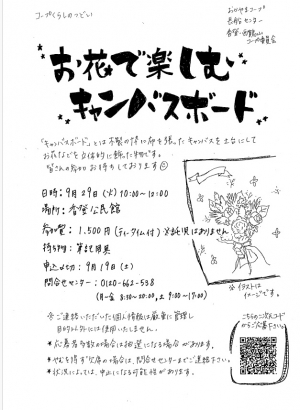 コープくらしのつどい
おかやまコープ
センター
コープ委員会
お花で楽しむ
キャンバスボード
「キャンバスボード」とは木製の枠に布を張ったキャンバスを土台にして
お花などを立体的に飾った物です。
皆さんの参加お待ちしております
日時：9月29日（火）10:00～12:00
場所：香登公民館
参加費：1,500円（ティータイム付）※託児はありません
持ち物：筆記用具
申込〆切：9月19日（土）
問合せセンター：0120-662-538
（月～金 8:30～20:00、土 9:00～17:00）
※イラストは
イメージです。
※ご連絡いただいた個人情報は厳重に管理し
目的以外には使用いたしません。
＊応募者多数の場合は抽選になる場合があります。
＊やむを得ず欠席の場合は、問合せセンターまでご連絡下さい。
＊状況によっては、中止になる可能性があります。
こちらの二次元コード
からご応募下さい